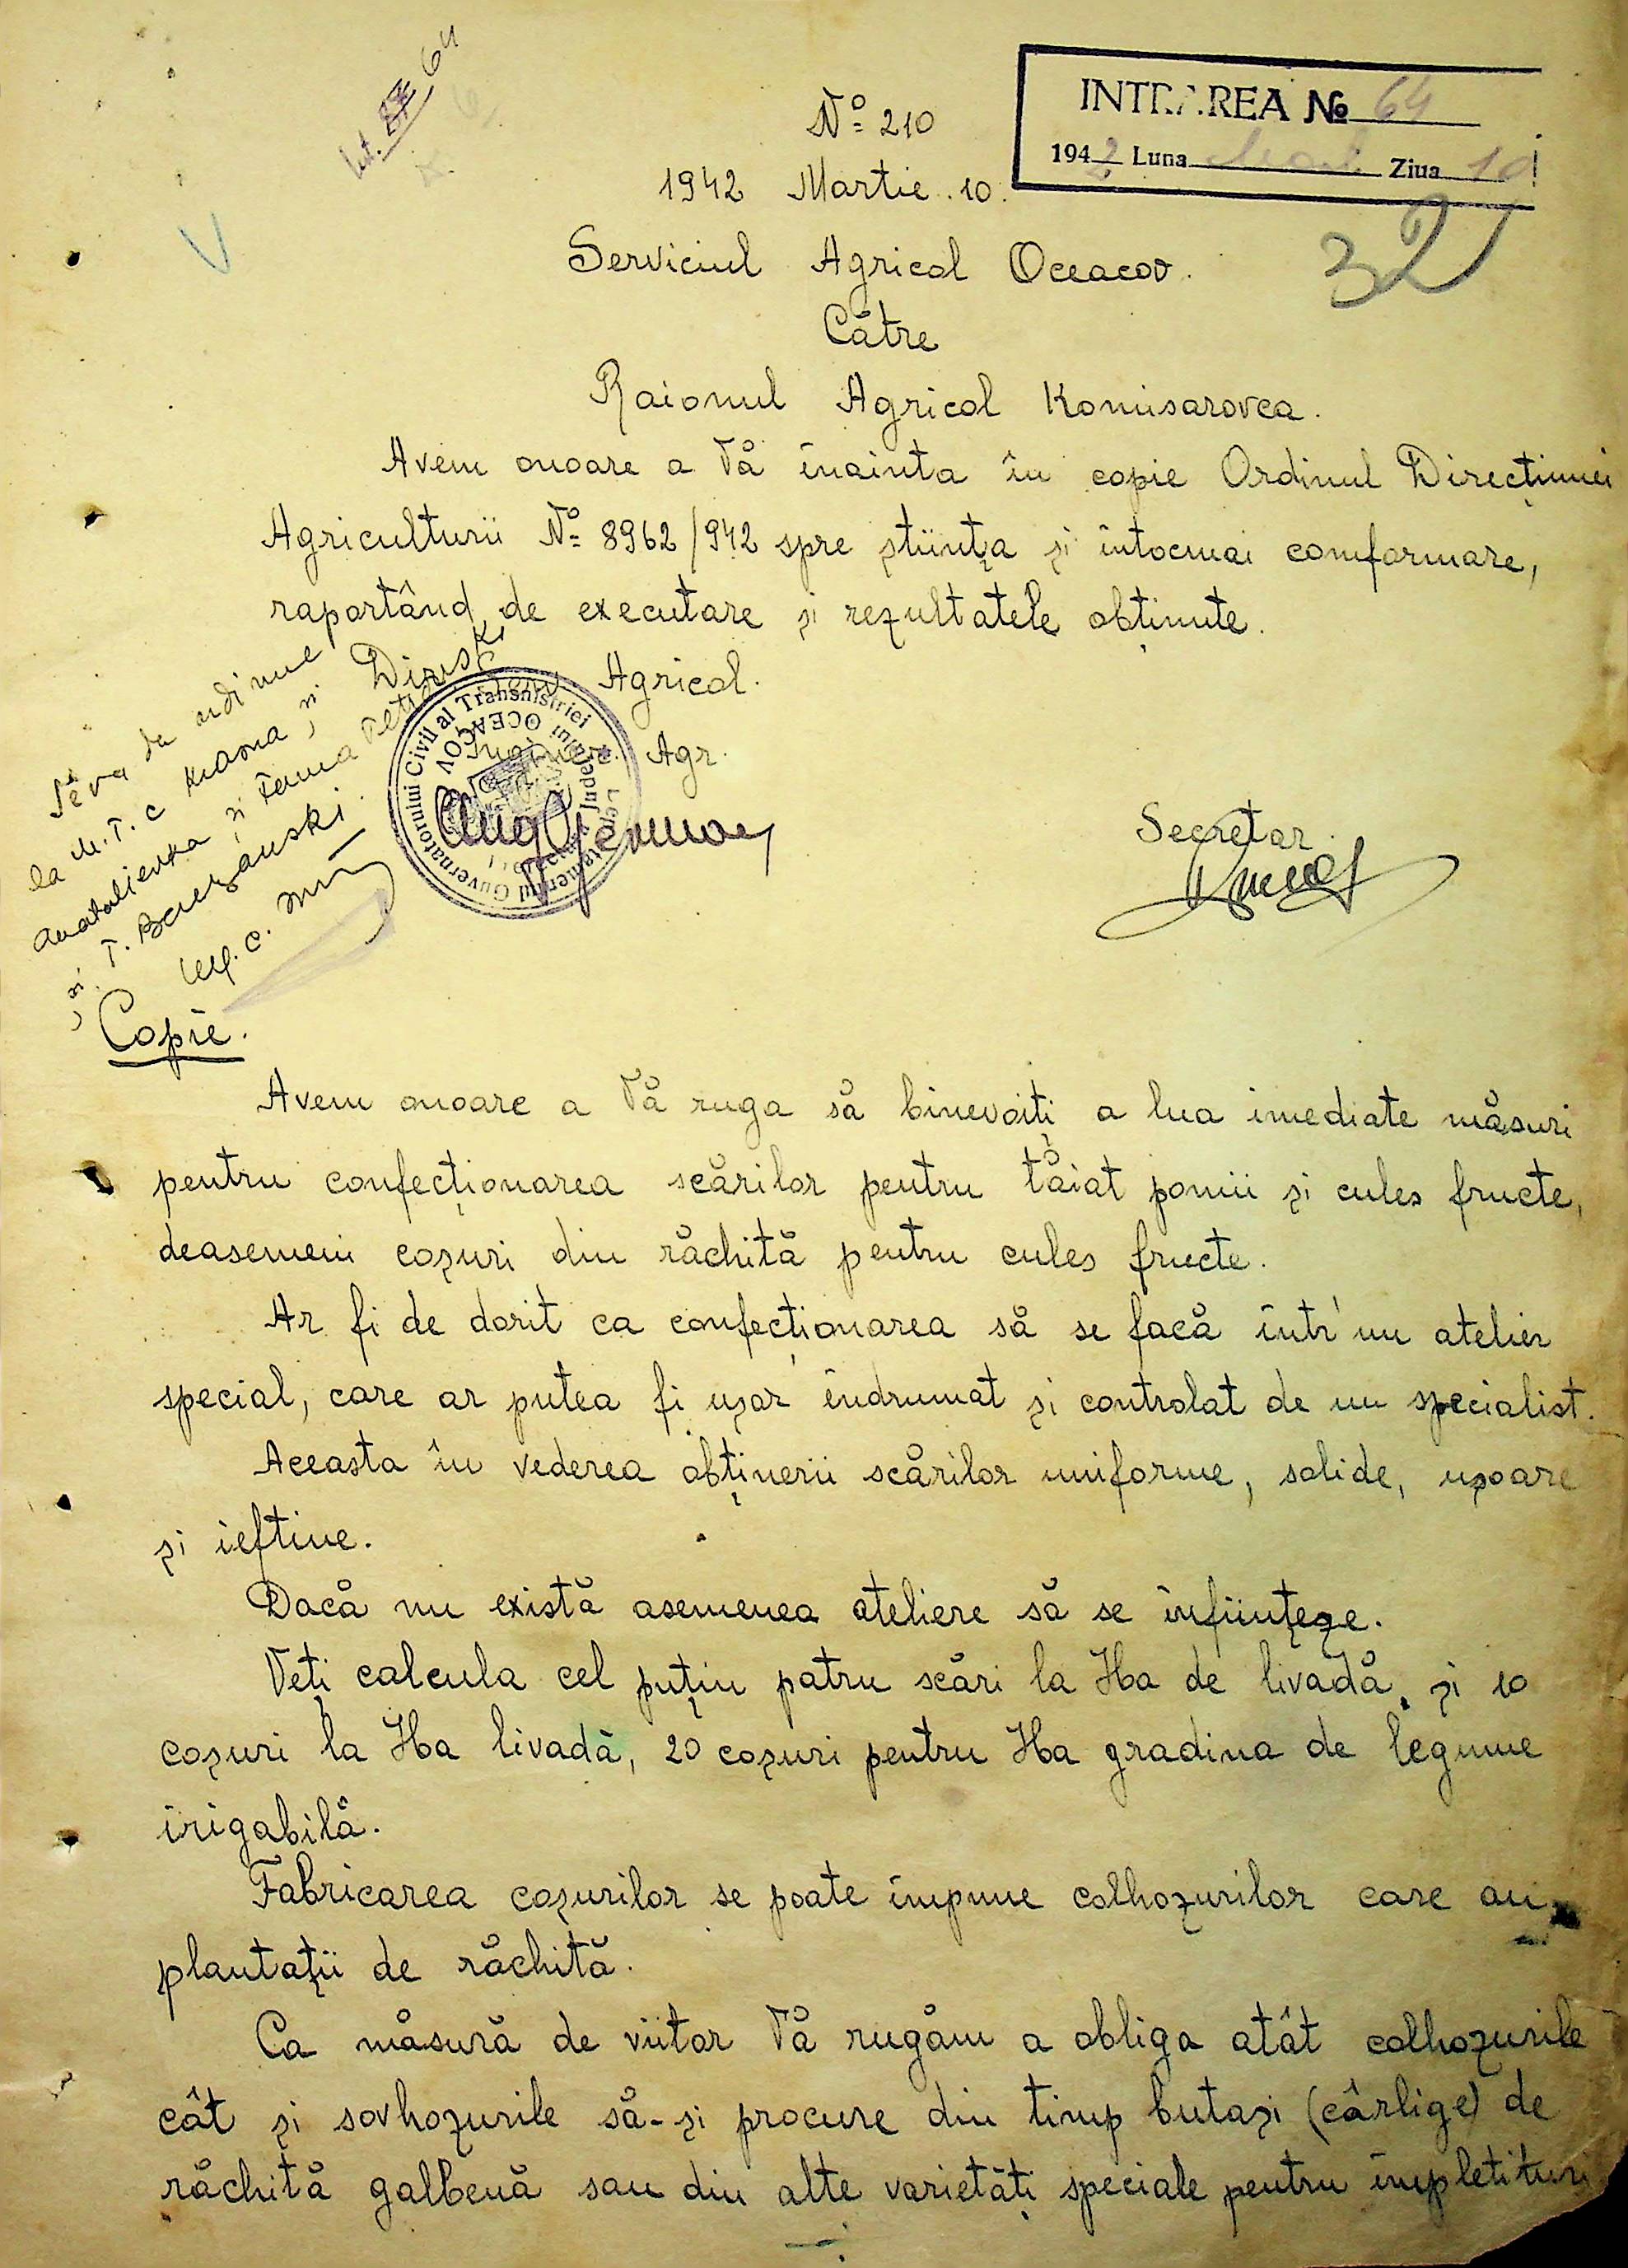 Int. 64
INTRAREA № 64
1942 Luna Ziua 10
32
Nº 210
1942 Martie 10.
Serviciul Agricol Oceacov.
Către
Raionul Agricol Komisarovca.
Avem onoare a Vă înainta în copie Ordinul Direcțiunei
Agriculturii Nº 8962/942 spre știința și întocmai comformare,
raportând de executare și rezultatele obținute.
Agricol.
Inginer Agr.
Guvernatorului Civil al Transnistriei
OCEACOV
Secretar.
Se va da ordine
la M.T.C
și Ferma
și T.
Copie.
Avem onoare a Vă ruga să binevoiți a lua imediate măsuri
pentru confecționarea scărilor pentru tăiat pomii și cules fructe,
deasemeni coșuri din răchită pentru cules fructe.
Ar fi de dorit ca confecționarea să se facă într'un atelier
special, care ar putea fi ușor îndrumat și controlat de un specialist.
Aceasta în vederea obținerii scărilor uniforme, solide, ușoare
și ieftine.
Dacă nu există asemenea ateliere să se înființeze.
Veți calcula cel puțin patru scări la Ha de livadă, și 10
coșuri la Ha livadă, 20 coșuri pentru Ha gradina de legume
irigabilă.
Fabricarea coșurilor se poate impune colhozurilor care au
plantații de răchită.
Ca măsură de viitor Vă rugăm a obliga atât colhozurile
cât și sovhozurile să-și procure din timp butași (cârlige) de
răchită galbenă sau din alte varietăți speciale pentru împletituri